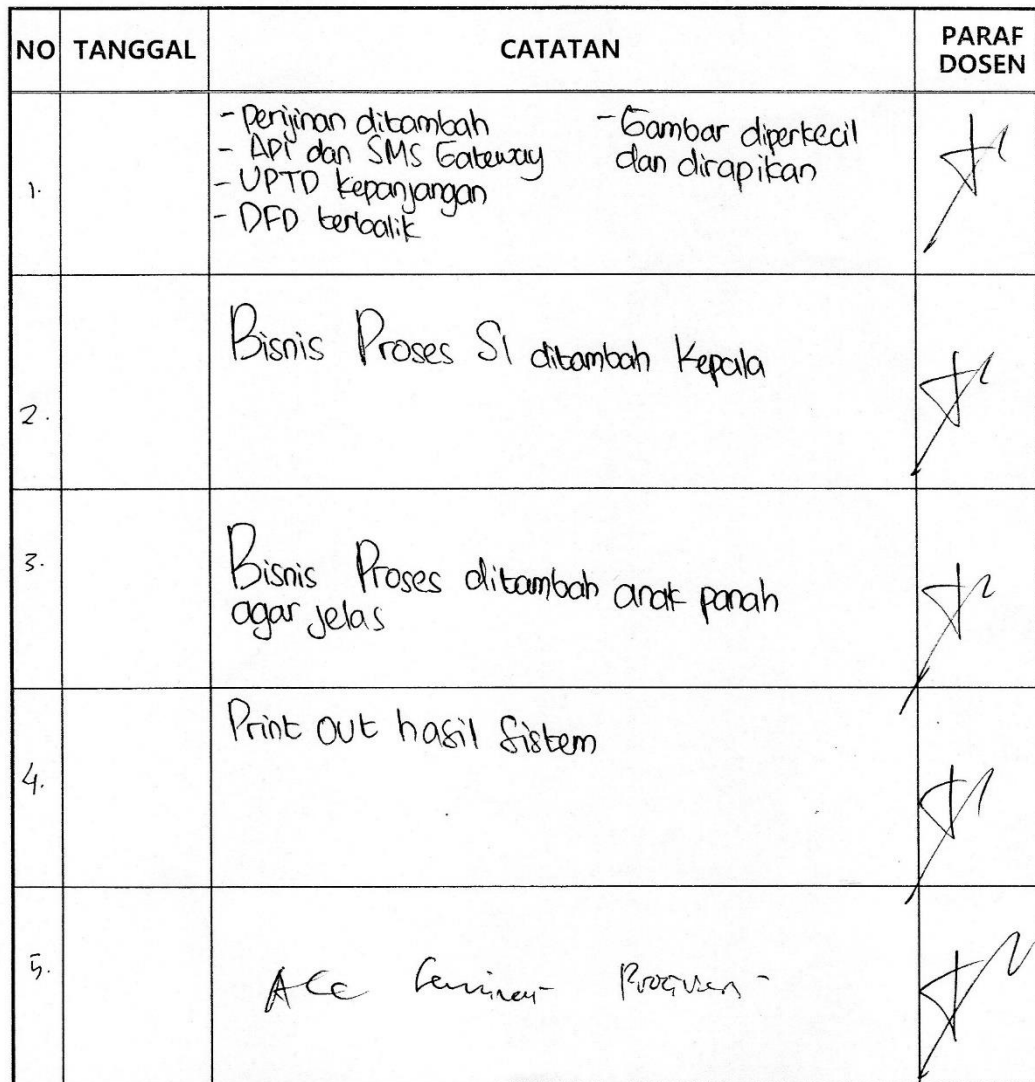 NO TANGGAL CATATAN PARAF DOSEN
1.
- Perijinan ditambah
- API dan SMS Gateway
- UPTD Kepanjangan
- DFD terbalik
- Gambar diperkecil
dan dirapikan
2.
Bisnis Proses SI ditambah Kepala
3.
Bisnis Proses ditambah anak panah
agar jelas
4.
Print out hasil sistem
5.
ACC